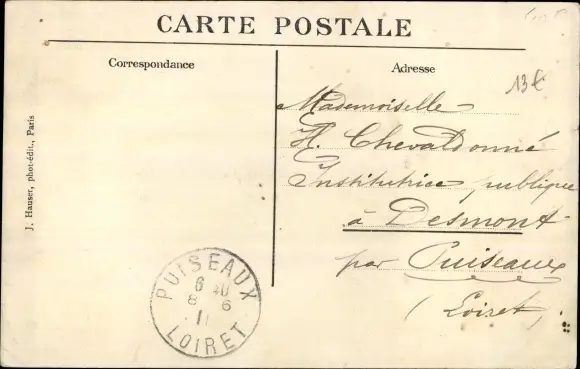 CARTE POSTALE
Correspondance
Adresse
13€
Mademoiselle
H. Chevaldonné
Institutrice publique
à Desmont
par Puiseaux
(Loiret)
J. Hauser, phot-édit., Paris
PUISEAUX
6 40
8 6
11
LOIRET